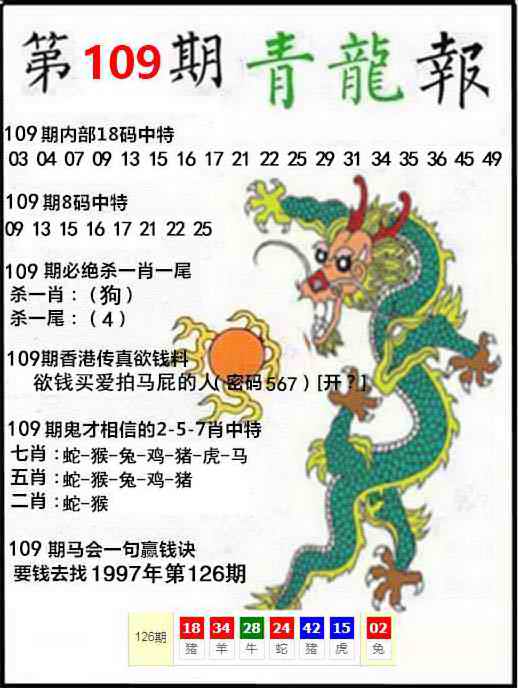 第109期青龍報
109期内部18码中特
03 04 07 09 13 15 16 17 21 22 25 29 31 34 35 36 45 49
109期8码中特
09 13 15 16 17 21 22 25
109 期必绝杀一肖一尾
杀一肖：（狗）
杀一尾：（4）
109期香港传真欲钱料
欲钱买爱拍马屁的人（密码567）[开？]
109期鬼才相信的2-5-7肖中特
七肖：蛇-猴-兔-鸡-猪-虎-马
五肖：蛇-猴-兔-鸡-猪
二肖：蛇-猴
109 期马会一句赢钱诀
要钱去找1997年第126期
126期 18 34 28 24 42 15 02
猪 羊 牛 蛇 猪 虎 兔